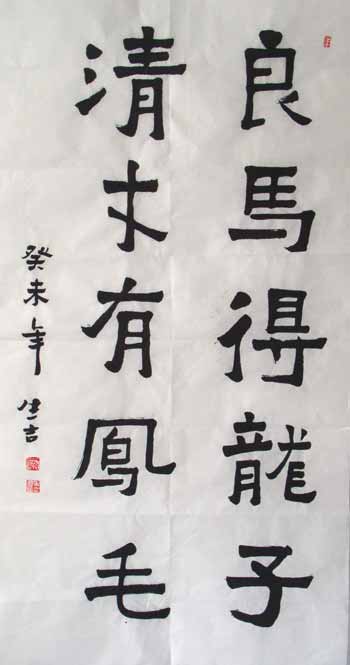 良馬得龍子
清才有鳳毛
癸未年 生吉